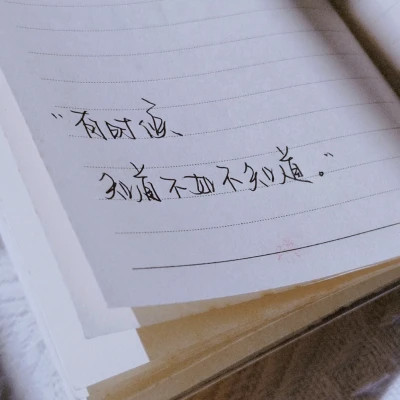 "有时候、
知道不如不知道。"